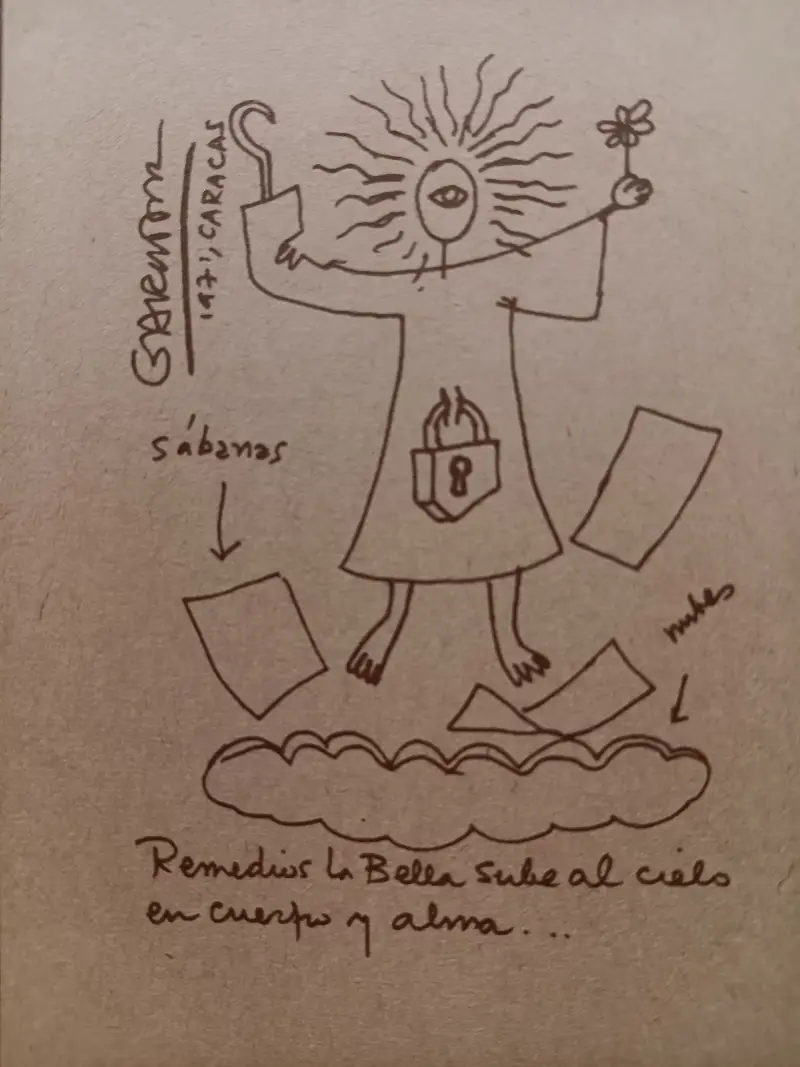 GARMENDIA
197', CARACAS
sábanas
nubes
Remedios la Bella sube al cielo
en cuerpo y alma...